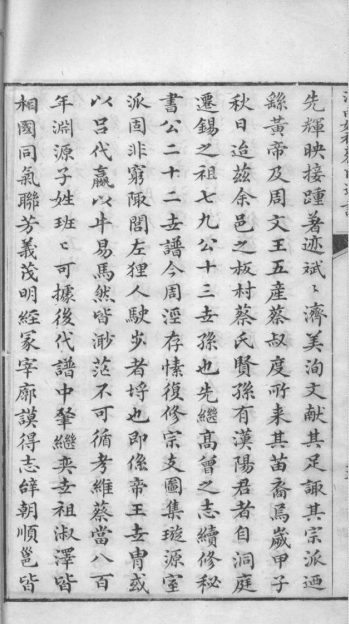 先輝映接踵著迹斌〻濟美洵文献其足諏其宗派迺
繇黃帝及周文王五產蔡叔度所来其苗裔焉歲甲子
秋日迨兹余邑之板村蔡氏賢孫有漢陽君者自洞庭
遷錫之祖七九公十三世孫也先繼高曾之志續修秘
書公二十二世譜今周涇存愫復修宗支圖集璇源室
派固非窮陬閭左狸人駛步者埒也即係帝王世胄或
以呂代嬴以牛易馬然皆渺茫不可循考維蔡當八百
年淵源子姓班〻可據後代譜中肇繼奕世祖淑澤皆
相國同氣聯芳義茂明經冢宰廓謨得志辭朝順邕皆